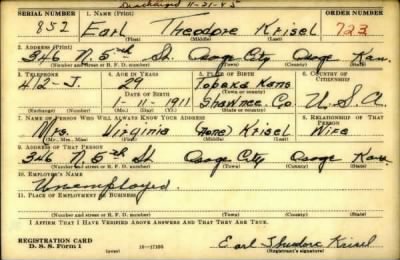 Discharged 11-21-45
SERIAL NUMBER 1. NAME (Print) ORDER NUMBER
852 Earl Theodore Krisel 723
(First) (Middle) (Last)
2. ADDRESS (Print)
346 N. 5th St. Osage City Osage Kan.
(Number and street or R. F. D. number) (Town) (County) (State)
3. TELEPHONE 4. AGE IN YEARS 5. PLACE OF BIRTH 6. COUNTRY OF CITIZENSHIP
412-J. 29 Topeka Kans
DATE OF BIRTH (Town or county)
1-11-1911 Shawnee Co. U.S.A.
(Exchange) (Number) (Mo.) (Day) (Yr.) (State or country)
7. NAME OF PERSON WHO WILL ALWAYS KNOW YOUR ADDRESS 8. RELATIONSHIP OF THAT PERSON
Mrs. Virginia (none) Krisel Wife
(Mr., Mrs., Miss) (First) (Middle) (Last)
9. ADDRESS OF THAT PERSON
346 N. 5th St Osage City Osage Kan.
(Number and street or R. F. D. number) (Town) (County) (State)
10. EMPLOYER'S NAME
Unemployed.
11. PLACE OF EMPLOYMENT OR BUSINESS
(Number and street or R. F. D. number) (Town) (County) (State)
I AFFIRM THAT I HAVE VERIFIED ABOVE ANSWERS AND THAT THEY ARE TRUE.
REGISTRATION CARD
D. S. S. Form 1 16-17105 Earl Theodore Krisel
(Registrant's signature)